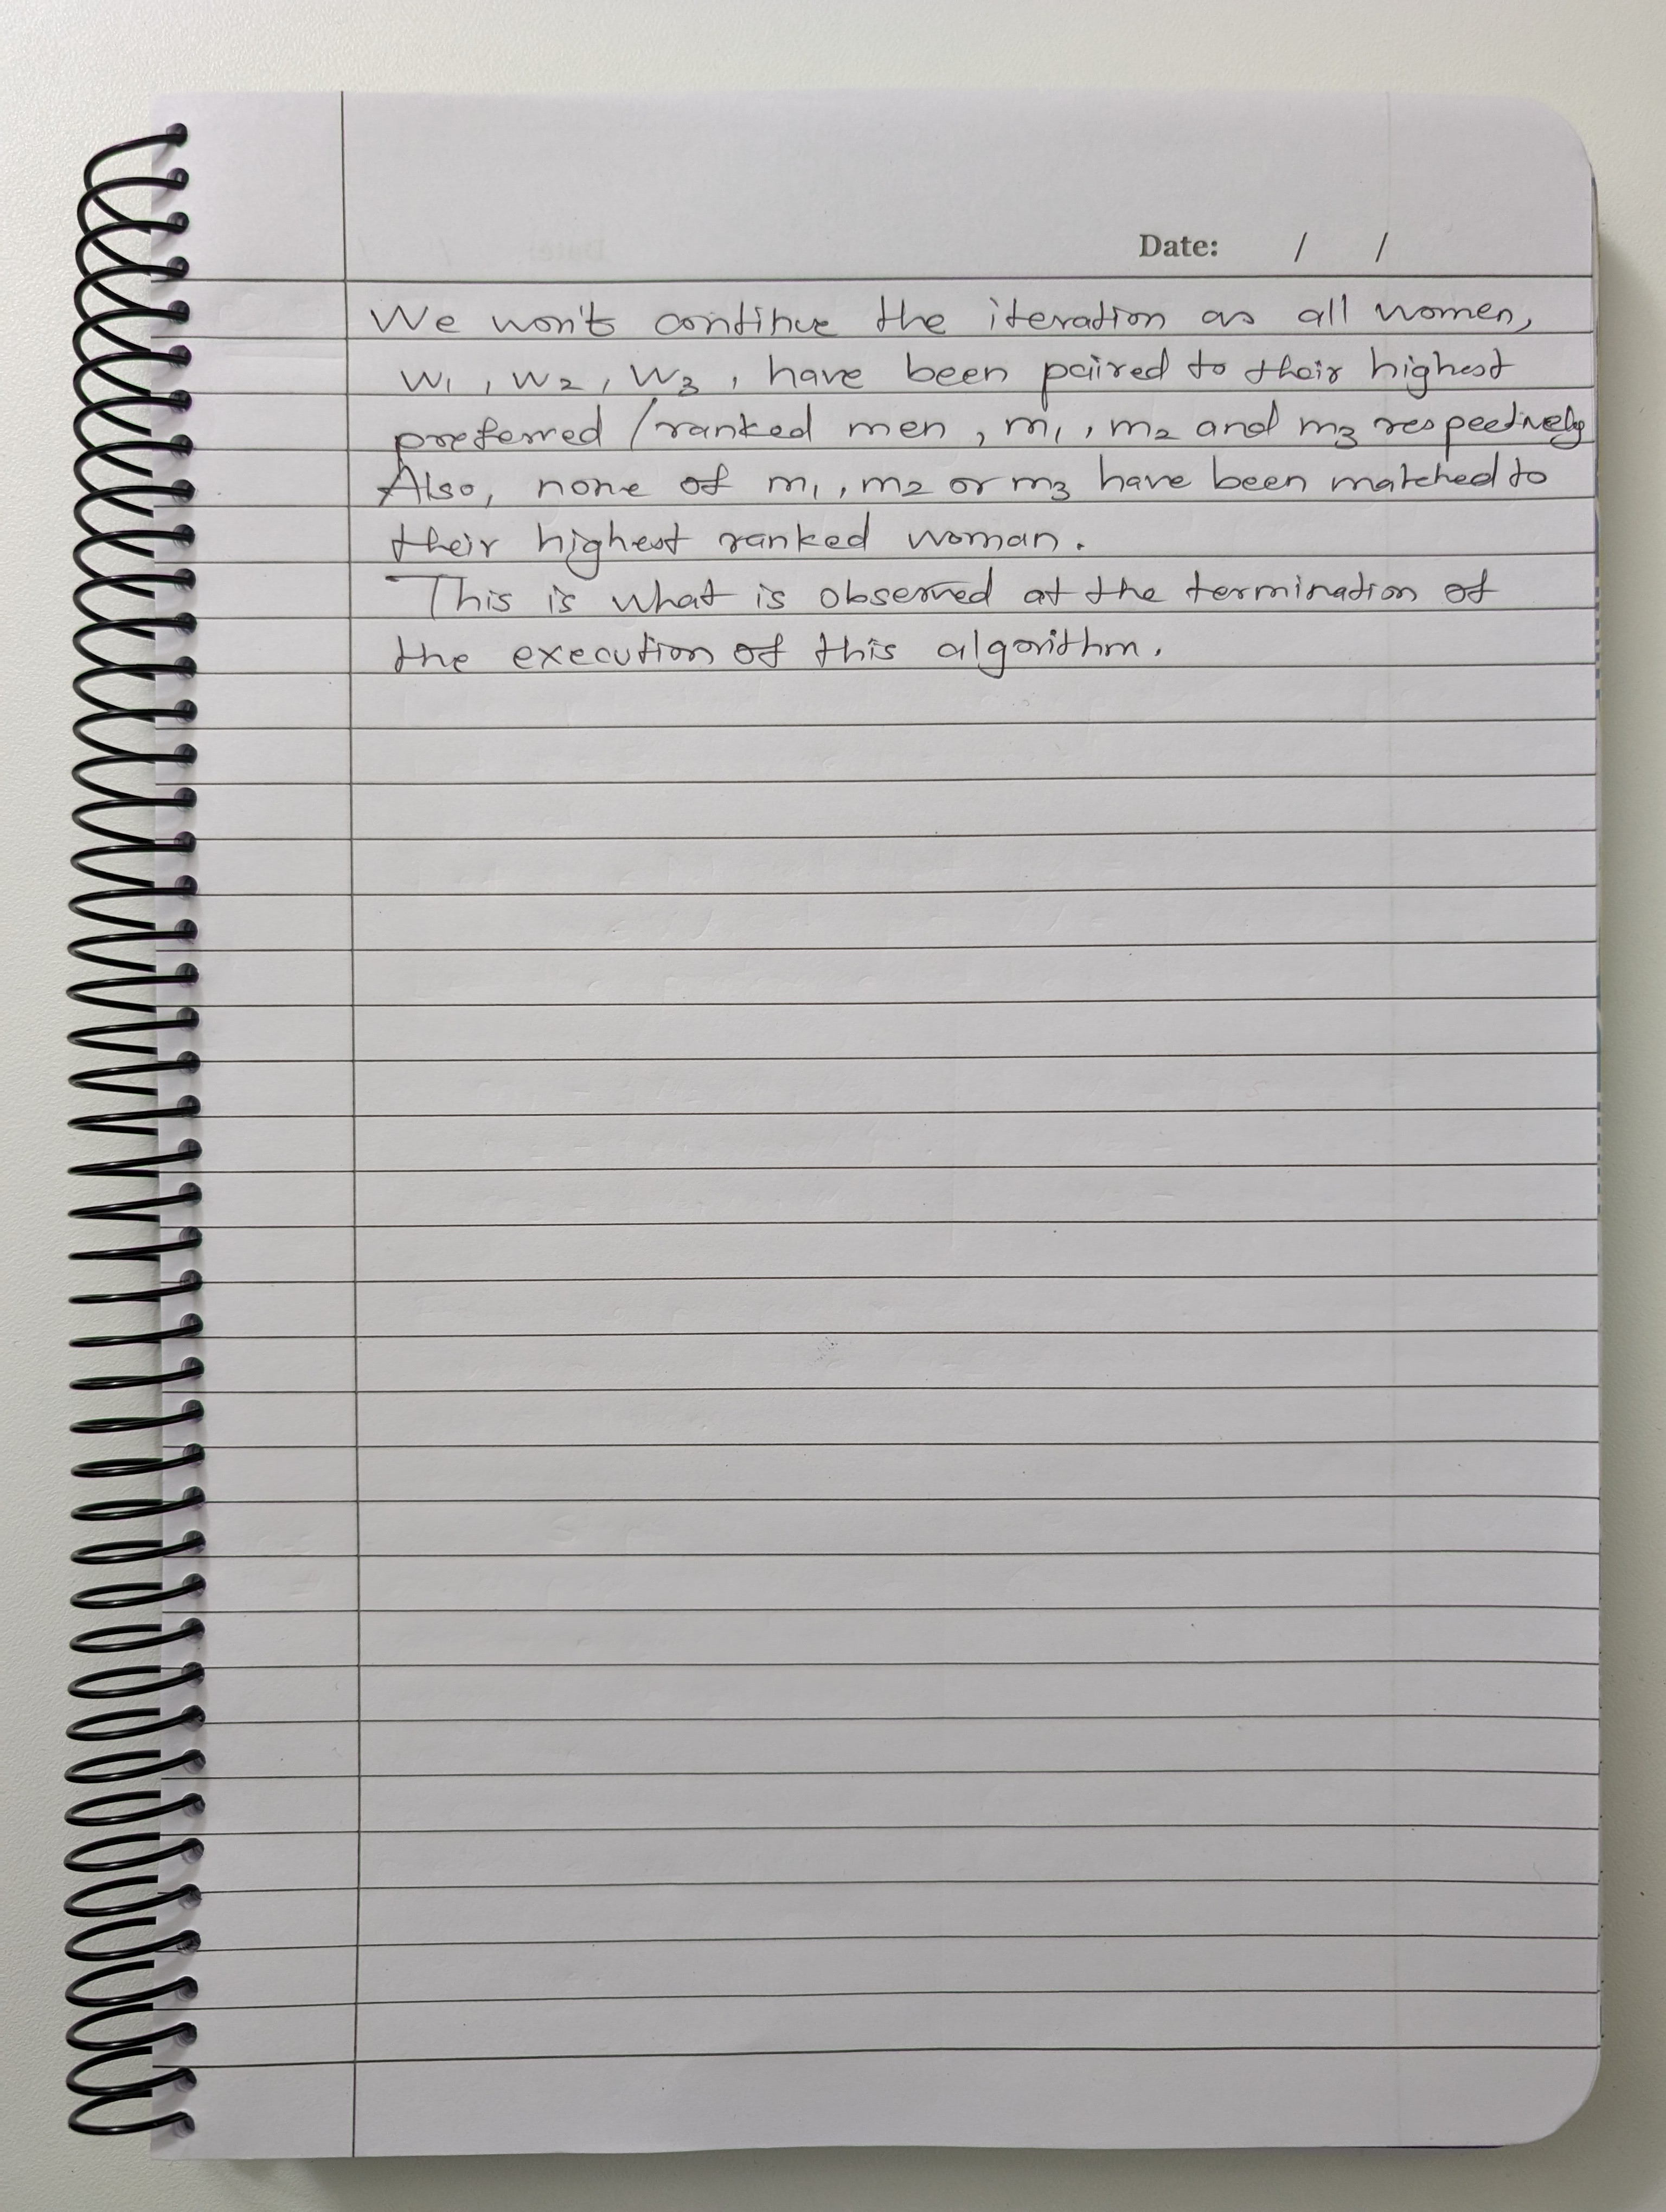 Date: / /
We won't continue the iteration as all women,
w₁, w₂, w₃, have been paired to their highest
preferred / ranked men, m₁, m₂ and m₃ respectively
Also, none of m₁, m₂ or m₃ have been matched to
their highest ranked woman.
This is what is observed at the termination of
the execution of this algorithm.